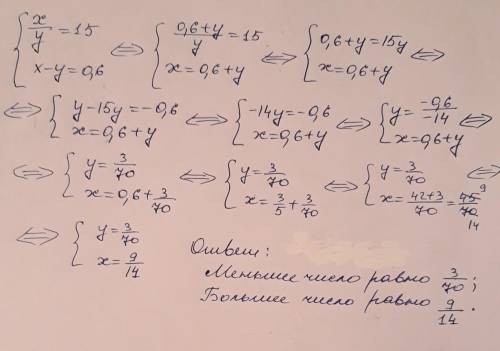 { x/y = 15, x-y = 0,6 ⇔ { (0,6+y)/y = 15, x = 0,6+y ⇔ { 0,6+y = 15y, x = 0,6+y ⇔
⇔ { y-15y = -0,6, x = 0,6+y ⇔ { -14y = -0,6, x = 0,6+y ⇔ { y = -0,6/-14, x = 0,6+y ⇔
⇔ { y = 3/70, x = 0,6+3/70 ⇔ { y = 3/70, x = 3/5+3/70 ⇔ { y = 3/70, x = (42+3)/70 = 45/70 9 14 ⇔
⇔ { y = 3/70, x = 9/14
Ответ:
Меньшее число равно 3/70;
Большее число равно 9/14.